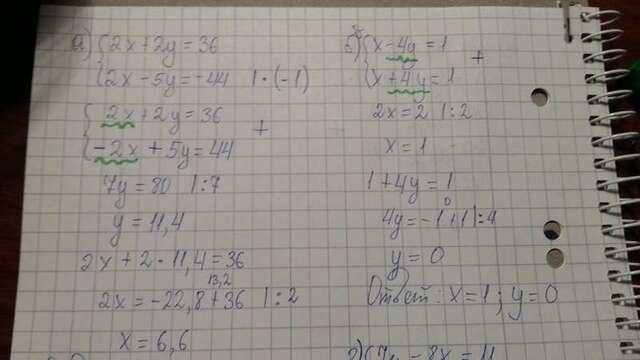 а) { 2x + 2y = 36
2x - 5y = -44 | · (-1)
{ 2x + 2y = 36
-2x + 5y = 44 +
7y = 80 | : 7
y = 11,4
2x + 2 · 11,4 = 36
13,2
2x = -22,8 + 36 | : 2
x = 6,6
б) { x - 4y = 1
x + 4y = 1 +
2x = 2 | : 2
x = 1
1 + 4y = 1
0
4y = -1 + 1 | : 4
y = 0
Ответ: x = 1; y = 0
- 8x = 11